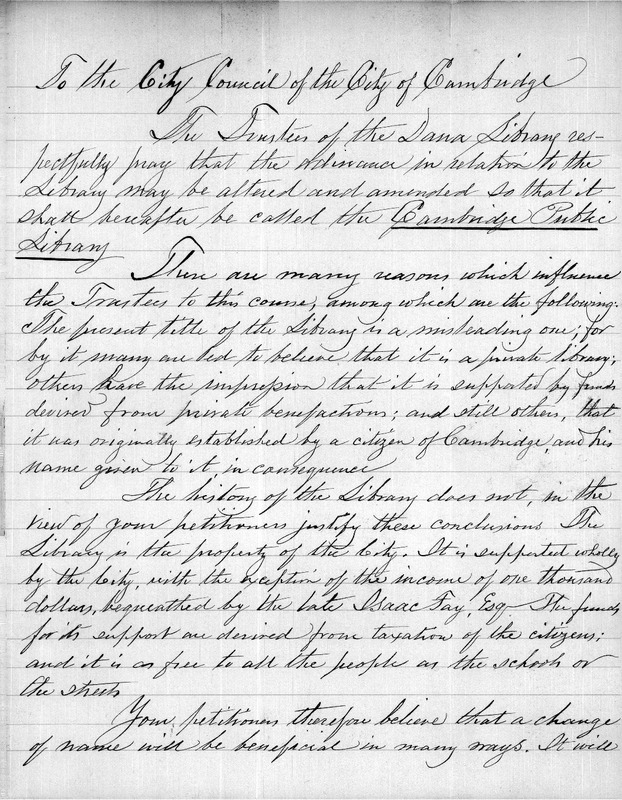 To the City Council of the City of Cambridge
The Trustees of the Dana Library res-
pectfully pray that the ordinance in relation to the
Library may be altered and amended so that it
shall hereafter be called the Cambridge Public
Library
There are many reasons which influence
the Trustees to this course, among which are the following.
The present title of the Library is a misleading one; for
by it many are led to believe that it is a private library;
others have the impression that it is supported by funds
derived from private benefactions; and still others, that
it was originally established by a citizen of Cambridge, and his
name given to it in consequence
The history of the Library does not, in the
view of your petitioners justify these conclusions The
Library is the property of the City. It is supported wholly
by the City, with the exception of the income of one thousand
dollars, bequeathed by the late Isaac Fay, Esq. The funds
for its support are derived from taxation of the citizens;
and it is as free to all the people as the schools or
the streets
Your petitioners therefore believe that a change
of name will be beneficial in many ways. It will